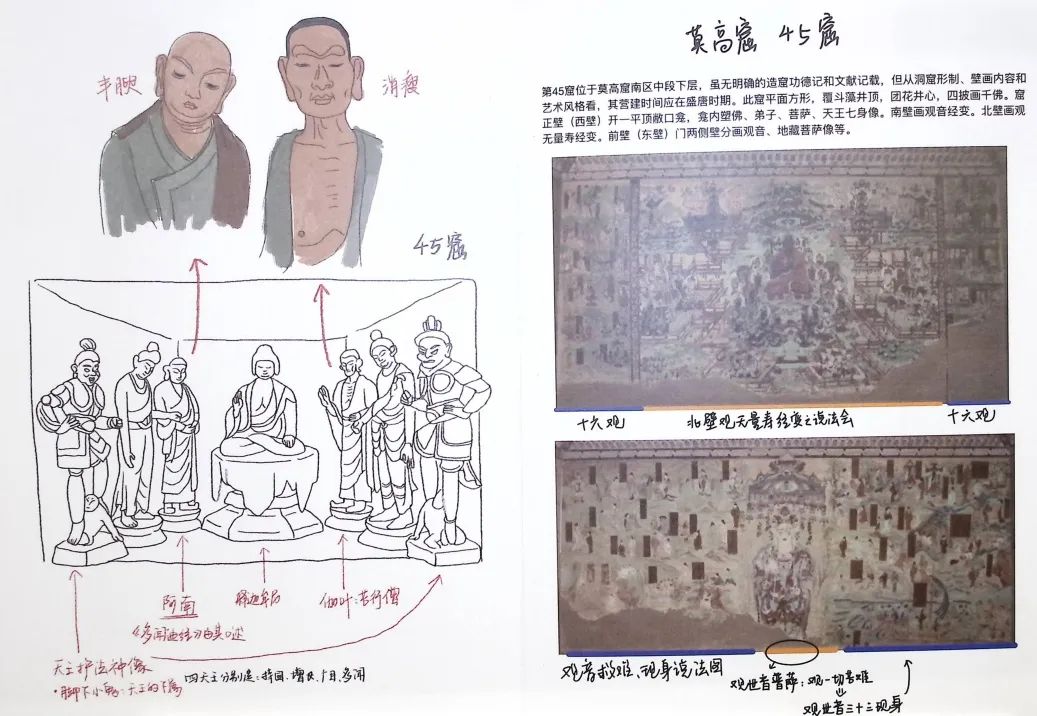 丰腴
消瘦
45窟
阿南
释迦牟尼
伽叶:苦行僧
由其口述
天王护法神像
·脚下小鬼:天王的下属
四天王分别是:持国、增长、广目、多闻
莫高窟 45窟
第45窟位于莫高窟南区中段下层，虽无明确的造窟功德记和文献记载，但从洞窟形制、壁画内容和
艺术风格看，其营建时间应在盛唐时期。此窟平面方形，覆斗藻井顶，团花井心，四披画千佛。窟
正壁（西壁）开一平顶敞口龛，龛内塑佛、弟子、菩萨、天王七身像。南壁画观音经变。北壁画观
无量寿经变。前壁（东壁）门两侧壁分画观音、地藏菩萨像等。
十六观
北壁观无量寿经变之说法会
十六观
观音救难、现身说法图
观世音菩萨:观一切苦难
观世音三十三现身